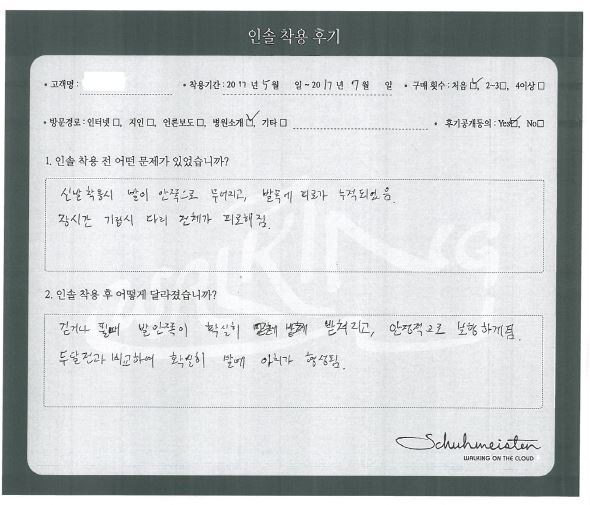 인솔 착용 후기
• 고객명 :
• 착용기간 : 2017 년 5월 일 ~ 2017 년 7월 일
• 구매 횟수 : 처음 ☑, 2~3□, 4이상 □
• 방문경로 : 인터넷 □, 지인 □, 언론보도 □, 병원소개 ☑, 기타 □
• 후기공개동의 : Yes☑, No□
1. 인솔 착용 전 어떤 문제가 있었습니까?
신발 착용시 발이 안쪽으로 무너지고, 발목에 피로가 누적되었음.
장시간 기립시 다리 전체가 피로해짐.
WALKING
2. 인솔 착용 후 어떻게 달라졌습니까?
걷거나 뛸때 발 안쪽이 확실히 받쳐지고, 안정적으로 보행하게됨.
두달전과 비교하여 확실히 발에 아치가 형성됨.
Schuhmeister
WALKING ON THE CLOUD